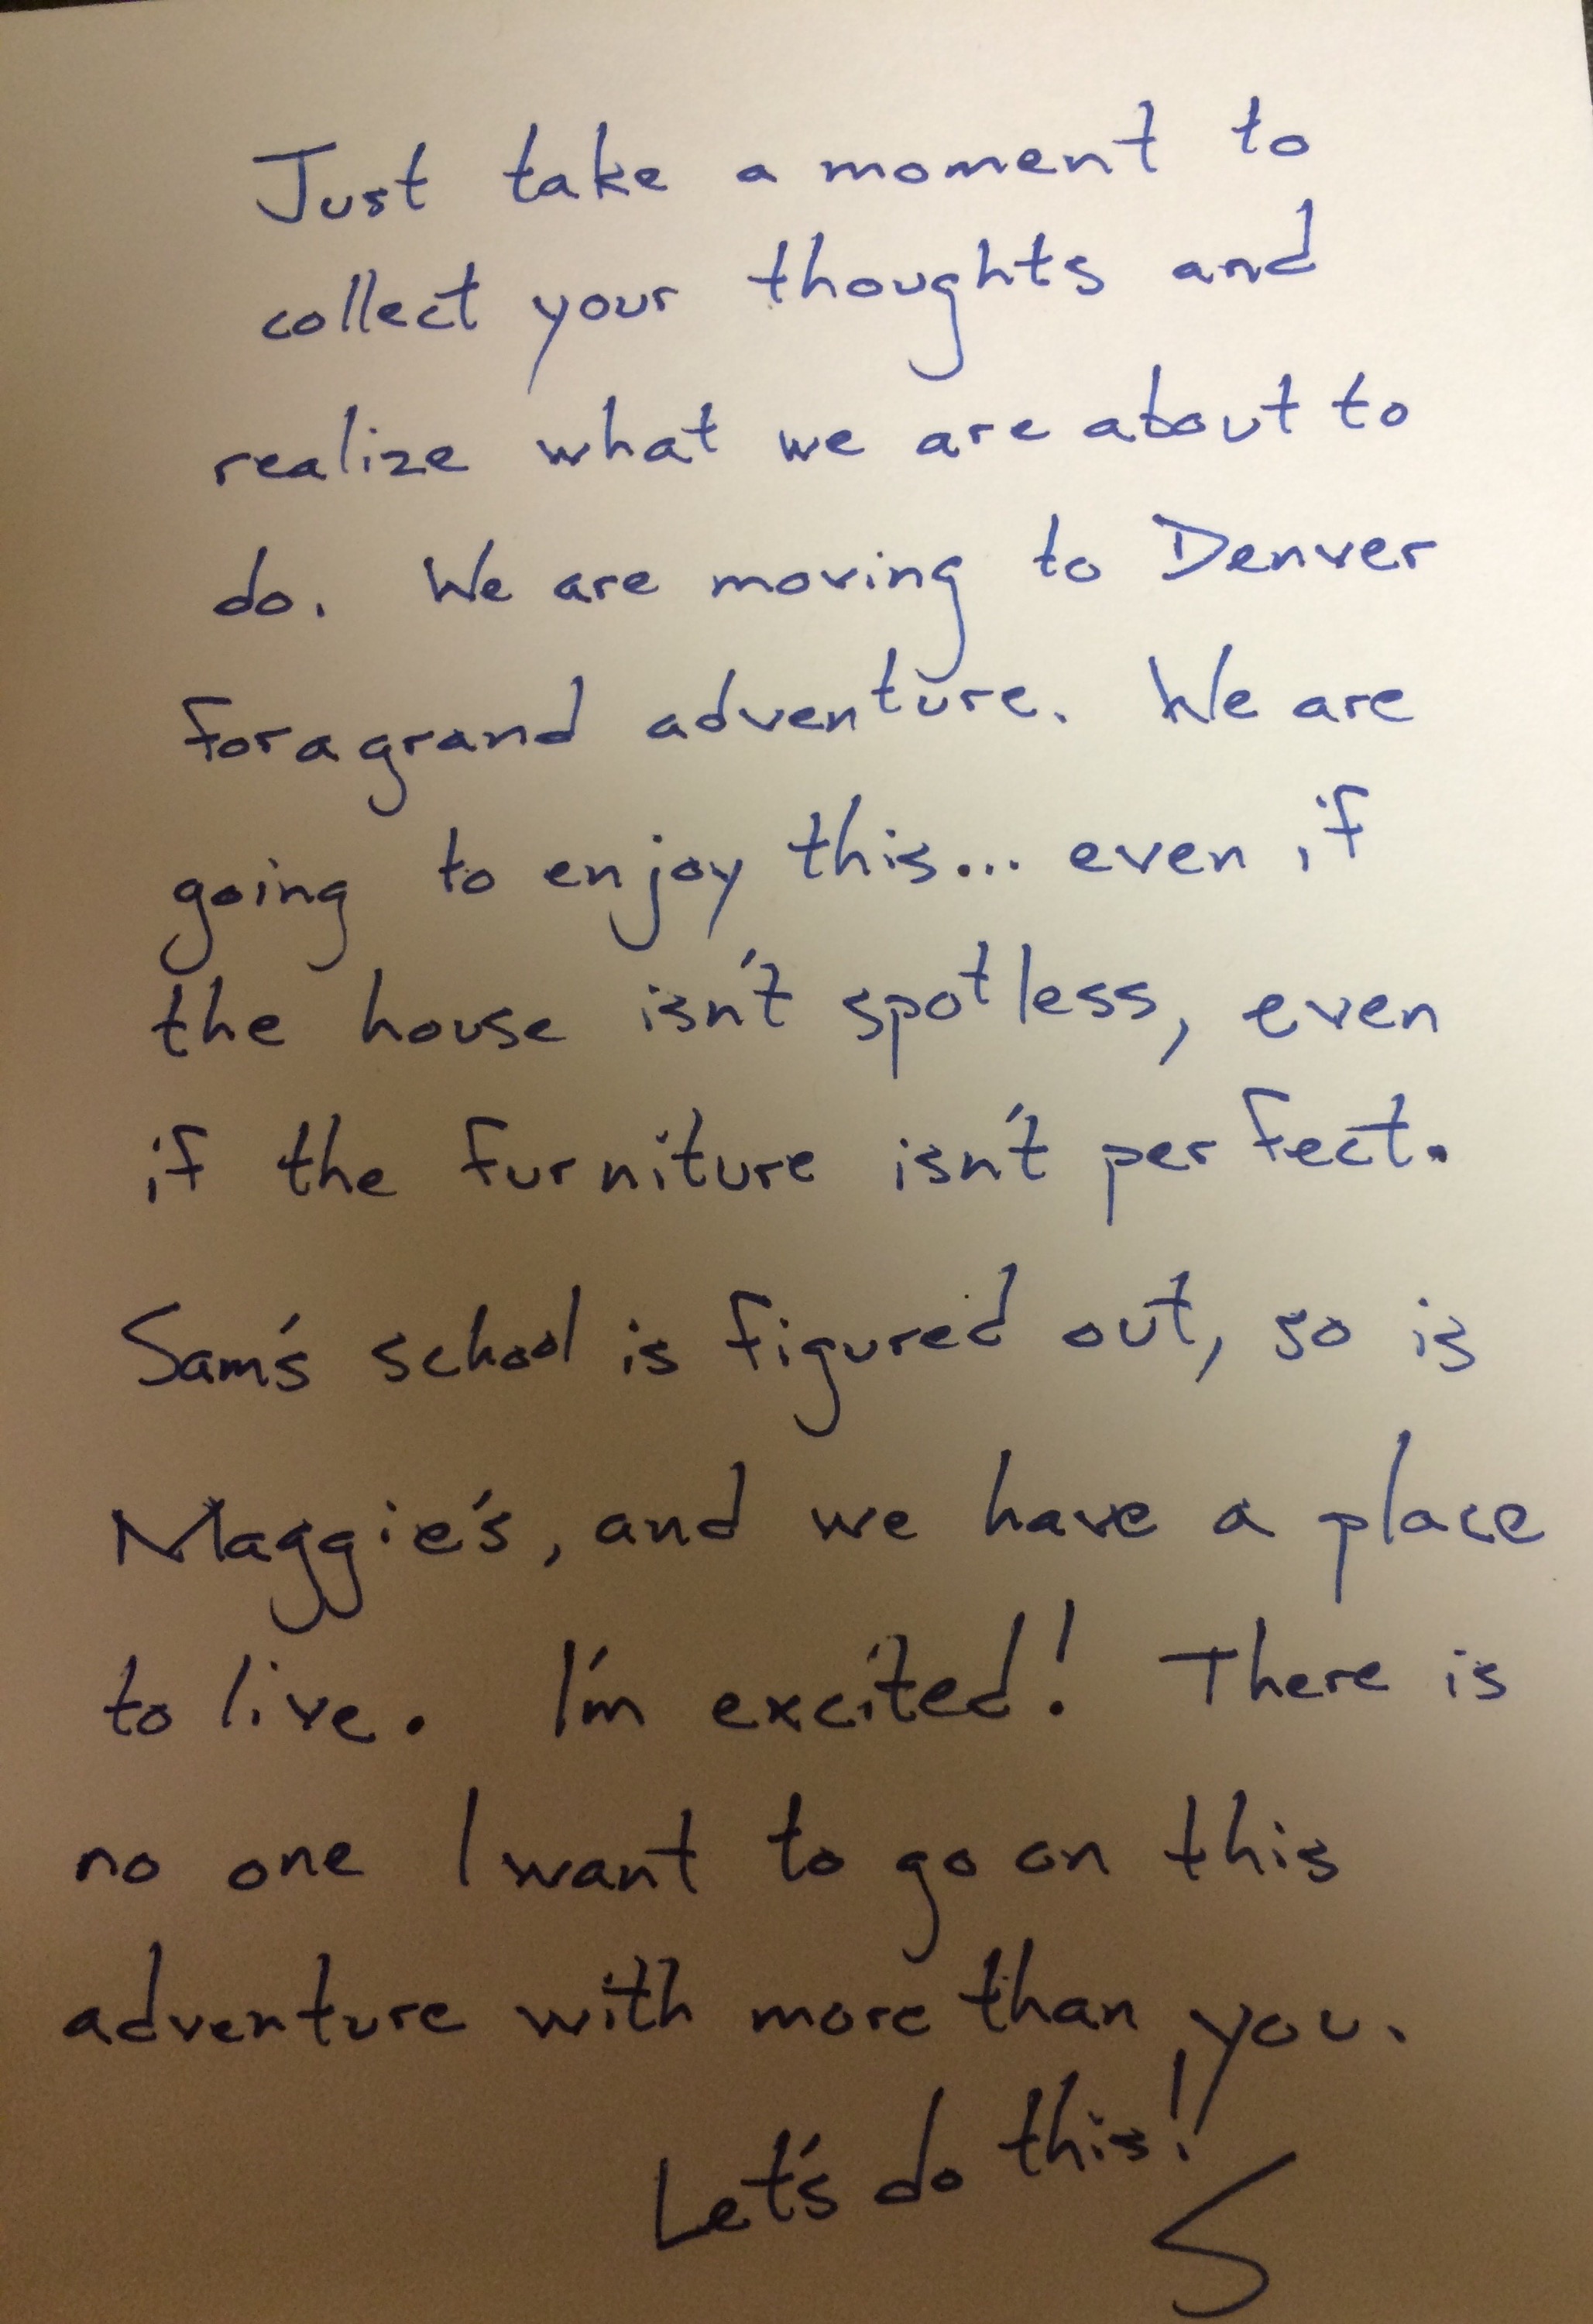 Just take a moment to
collect your thoughts and
realize what we are about to
do. We are moving to Denver
for a grand adventure. We are
going to enjoy this... even if
the house isn't spotless, even
if the furniture isn't perfect.
Sam's school is figured out, so is
Maggie's, and we have a place
to live. I'm excited! There is
no one I want to go on this
adventure with more than you.
Let's do this!
S